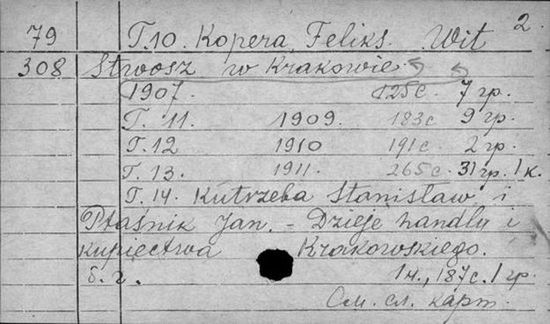 2.
79 Т.10. Kopera, Feliks. Wit
308 Stwosz w Krakowie.
1907. 125с. 7 гр.
Т. 11. 1909. 183с 9 гр.
Т. 12 1910 191с 2 гр.
Т. 13. 1911. 265с. 31 гр. 1 к.
Т. 14. Kutrzeba Stanisław, i
Ptaśnik Jan. - Dzieje handlu i
kupiectwa Krakowskiego.
б. г. 1 н., 187с. 1 гр.
См. сл. карт.